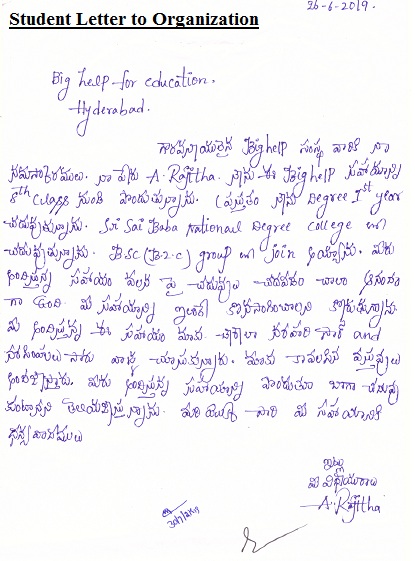 26-6-2019.
Student Letter to Organization
Big help for education.
Hyderabad.
గౌరవనీయులైన Bighelp సంస్థ వారికి నా
నమస్కారములు. నా పేరు A. Rajitha. నేను ఈ Bighelp సహాయాన్ని
8th Class నుండి పొందుతున్నాను. ప్రస్తుతం నేను Degree Ist year
చదువుతున్నాను. Sri Sai Baba National Degree College లో
చదువుతున్నాను. BSC group లో join అయ్యాను. మీరు
అందిస్తున్న సహాయం వలన పై చదువులు చదవడం చాలా ఆనందం
గా ఉంది. మీ సహాయాన్ని ఇలాగే కొనసాగించాలని కోరుతున్నాను.
మీ అందిస్తున్న ఈ సహాయం మాకు నరహరి సార్ and
సార్ వాళ్ళు చూస్తున్నారు. మాకు కావలసిన వస్తువులు
మీరు అందిస్తున్న సహాయాన్ని పొందుతూ బాగా చదువు
కుంటానని తెలియజేస్తున్నాను. మీ సహాయానికి
ధన్యవాదములు
ఇట్లు
మీ విధేయురాలు
A. Rajitha